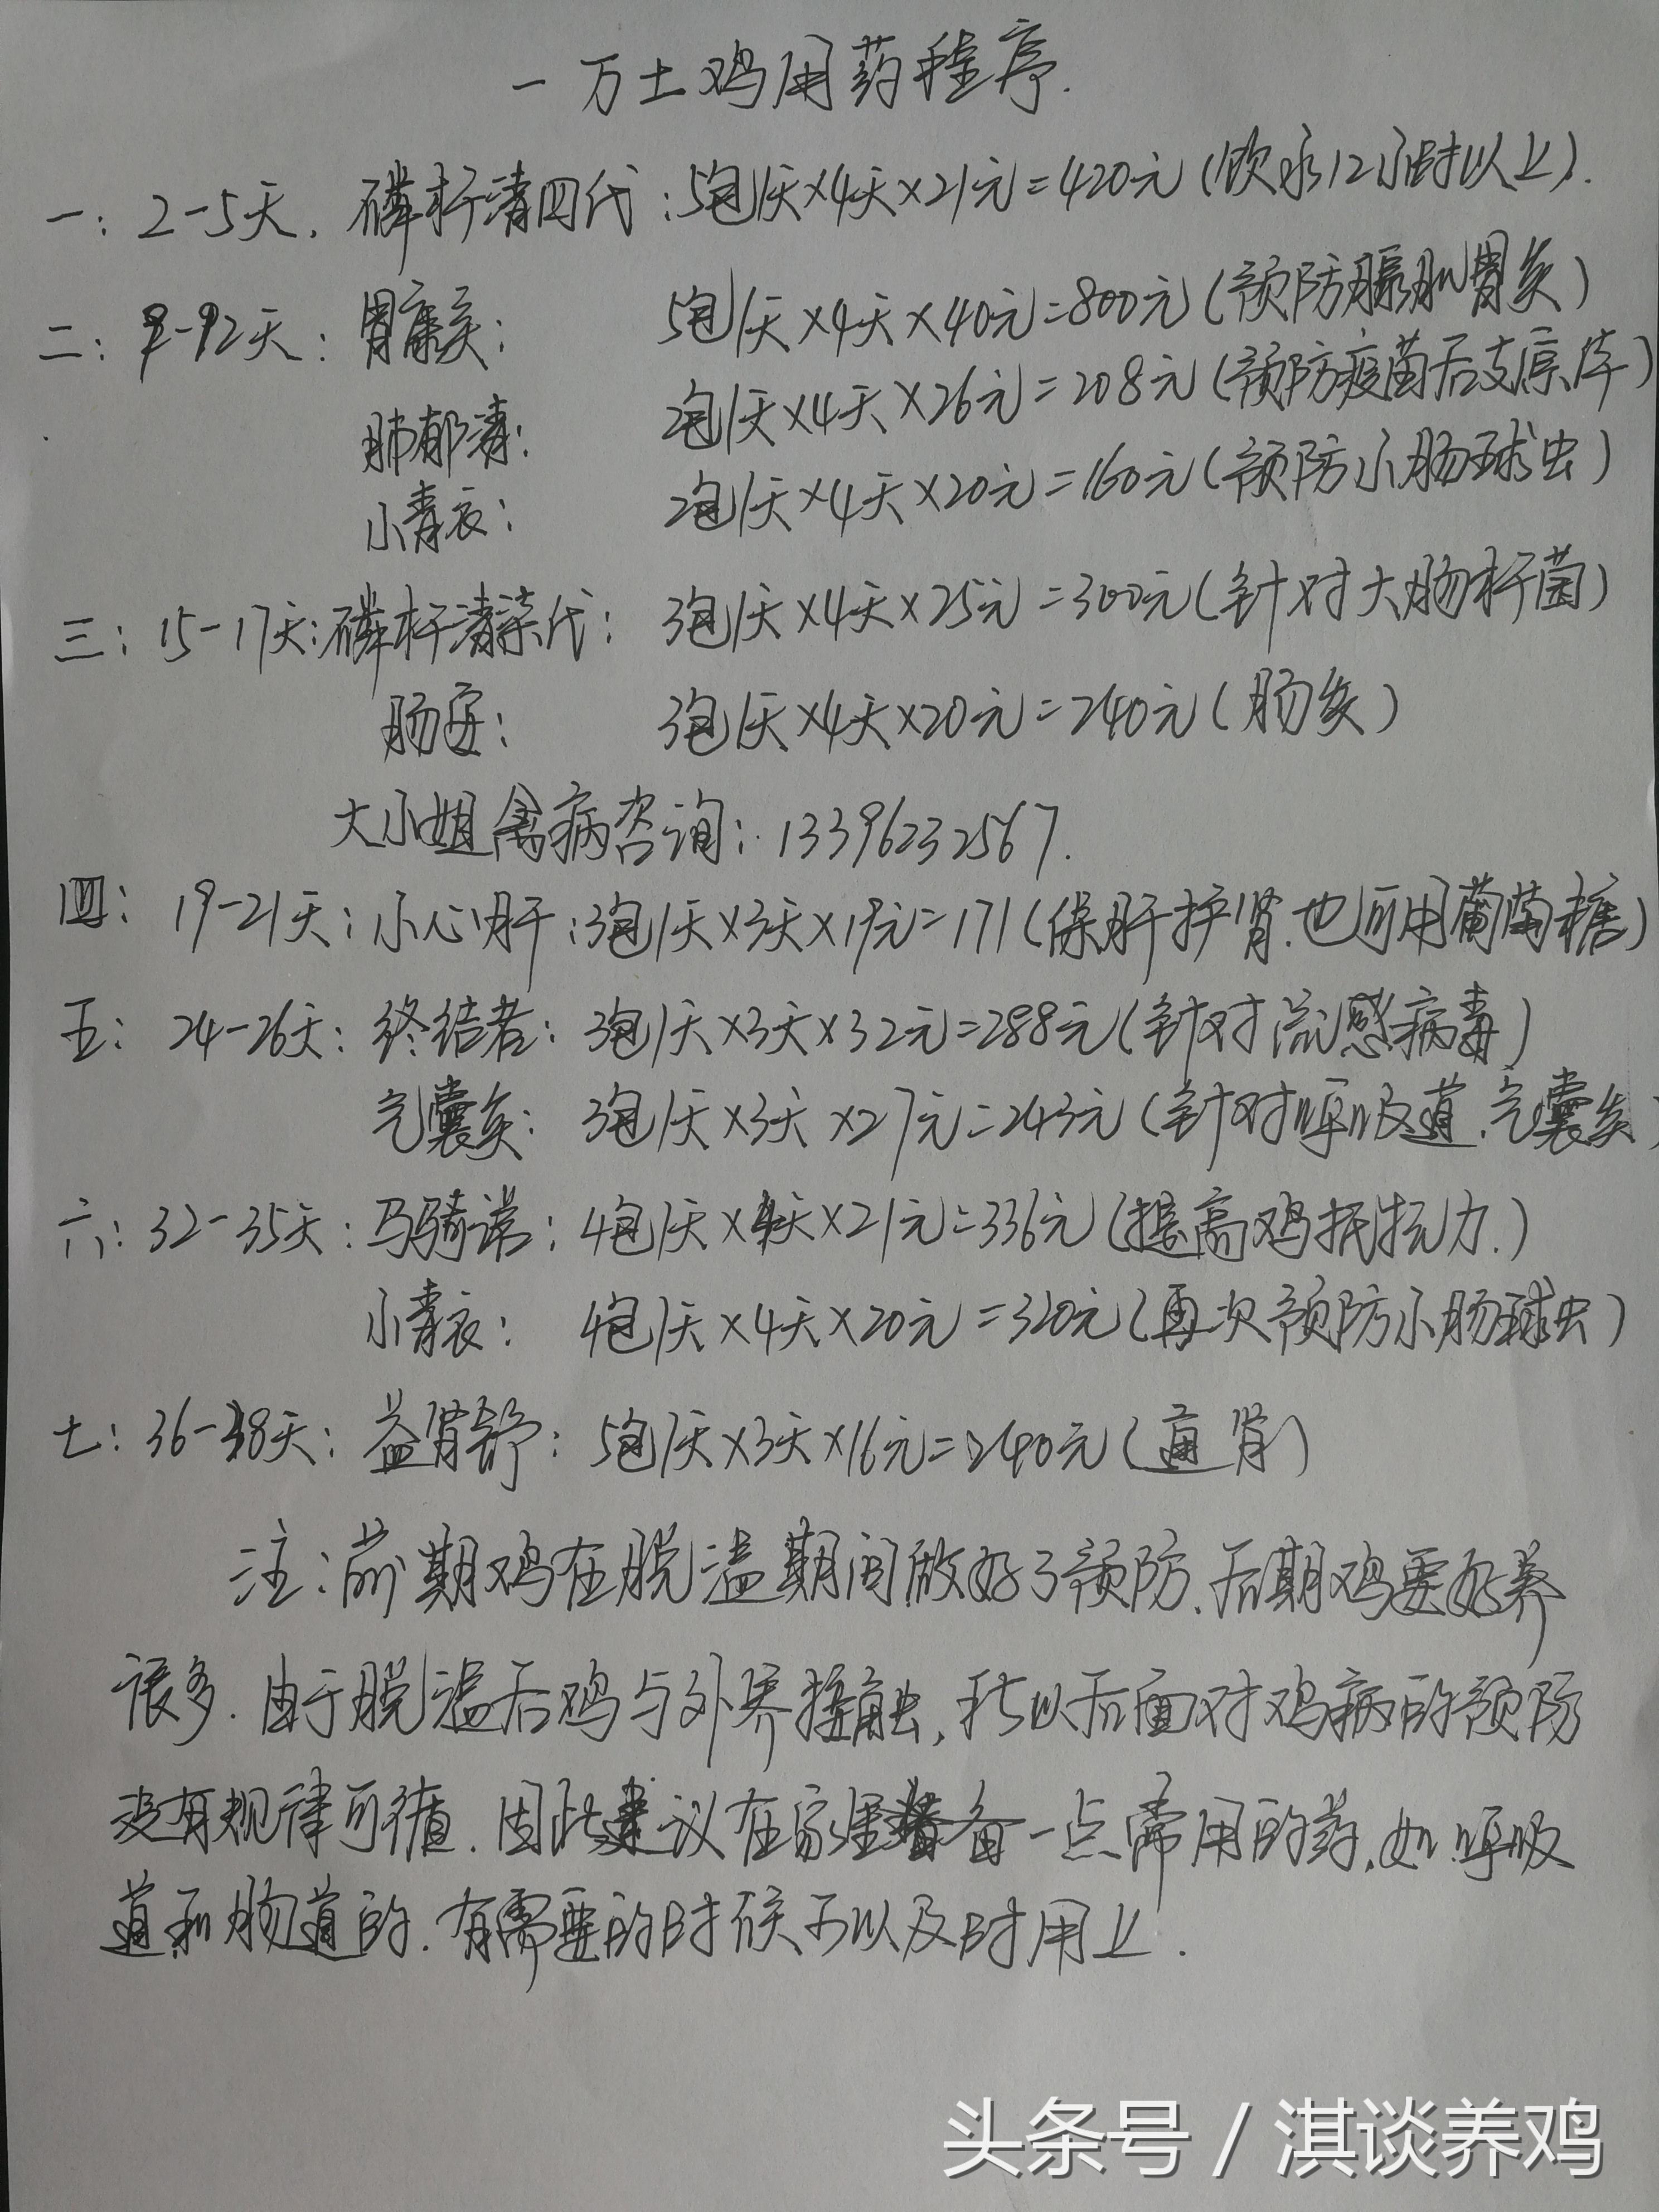 一万土鸡用药程序.
一: 2-5天. 磷杆清四代: 5包/天×4天×21元=420元(饮水12小时以上).
二: 9-12天: 胃腺炎: 5包/天×4天×40元=800元(预防腺肌胃炎)
肺郁清: 2包/天×4天×26元=208元(预防疫苗后支原体)
小青衣: 2包/天×4天×20元=160元(预防小肠球虫)
三: 15-17天: 磷杆清 代: 3包/天×4天×25元=300元(针对大肠杆菌)
肠 : 3包/天×4天×20元=240元(肠炎)
大小姐禽病咨询: 13396232567.
四: 19-21天: 小心肝: 3包/天×3天×19元=171(保肝护肾.也可用葡萄糖)
五: 24-26天: 终结者: 3包/天×3天×32元=288元(针对流感病毒)
气囊炎: 3包/天×3天×27元=243元(针对呼吸道.气囊炎)
六: 32-35天: 马骑诺: 4包/天×4天×21元=336元(提高鸡抵抗力.)
小青衣: 4包/天×4天×20元=320元(再次预防小肠球虫)
七: 36-38天: 益肾舒: 5包/天×3天×16元=240元(通肾)
注: 前期鸡在脱温期间做好了预防.后期鸡要好养
很多.由于脱温后鸡与外界接触,所以后面对鸡病的预防
没有规律可循.因此建议在家里 备一点常用的药.如呼吸
道和肠道的.有需要的时候可以及时用上.
头条号 / 淇谈养鸡